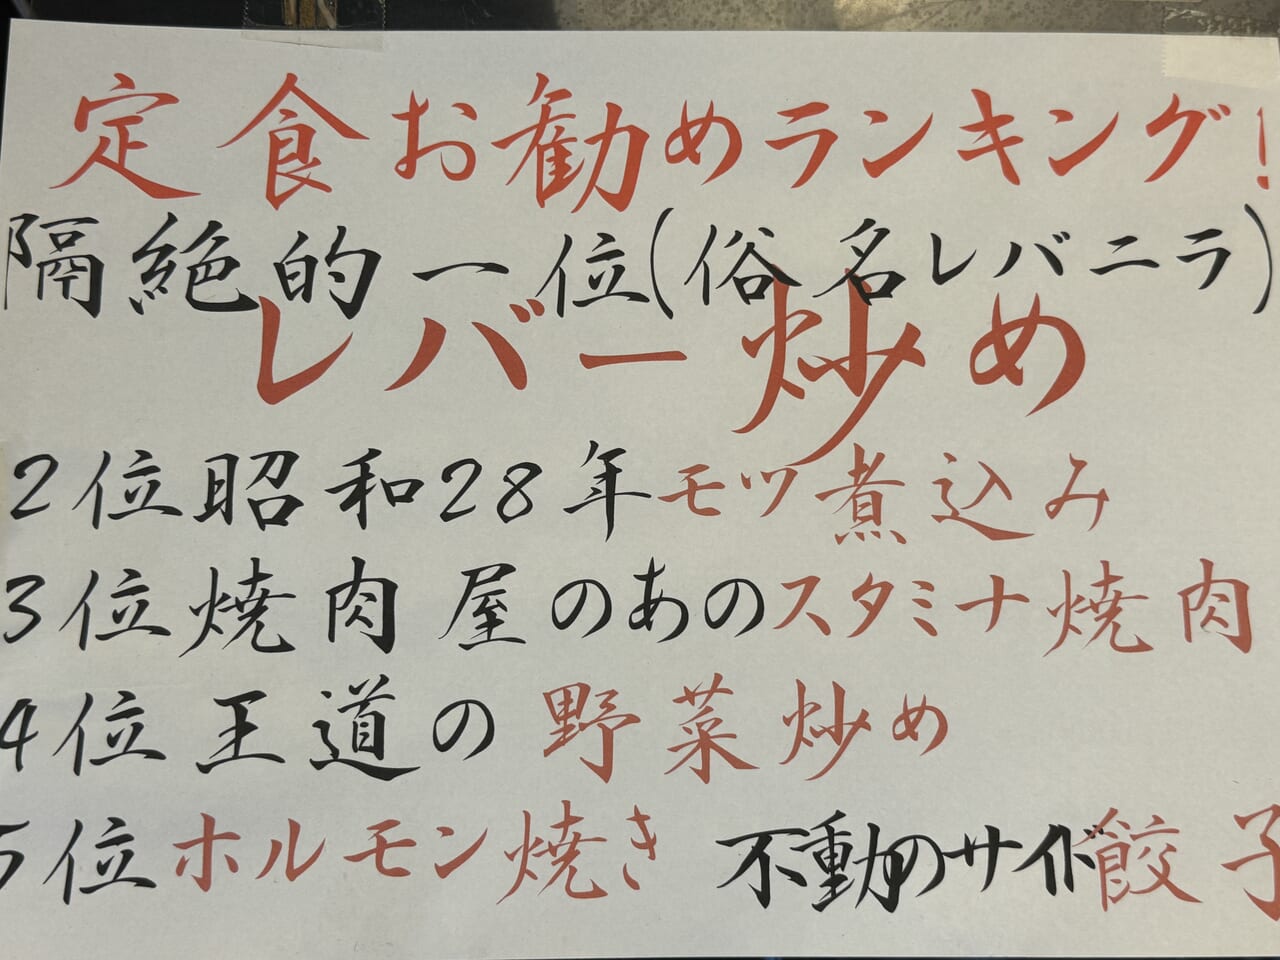 定食お勧めランキング!
隔絶的一位(俗名レバニラ)
レバー炒め
2位昭和28年モツ煮込み
3位焼肉屋のあのスタミナ焼肉
4位王道の野菜炒め
5位ホルモン焼き 不動のサイド餃子